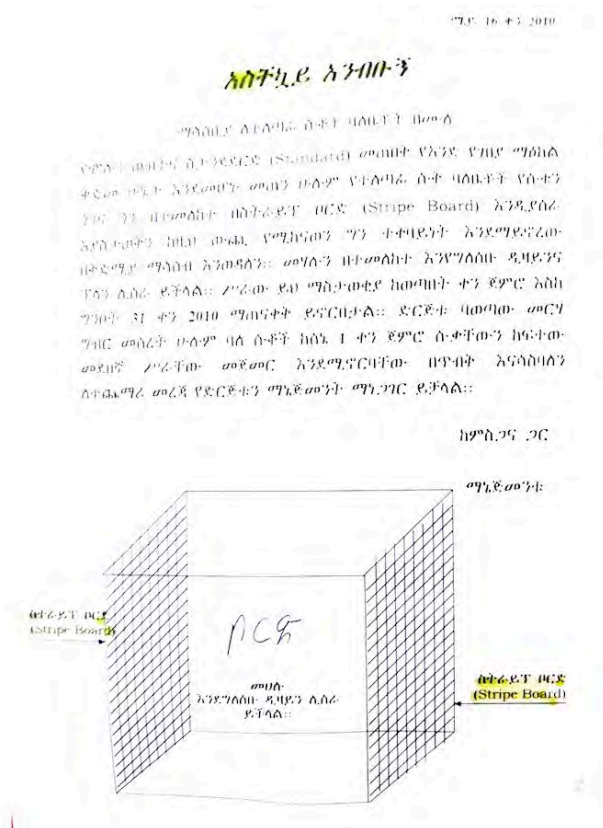 ማይ 16 ቀን 2010
አስቸኳይ አንብቡኝ
ማሳሰቢያ ለተለጣፊ ሱቆች ባለቤቶች በሙሉ
(Standard) መጠበቅ የአንድ የገበያ ማዕከል
እንደመሆኑ መጠን ሁሉም የተለጣፊ ሱቅ ባለቤቶች የሱቁን
በተመለከተ በስትራይፕ ቦርድ (Stripe Board) እንዲያሰራ
እያስታወቅን ከዚህ ውጪ የሚከናወን ግን ተቀባይነት እንደማይኖረው
በቅድሚያ ማሳሰብ እንወዳለን፡፡ መሃሉን በተመለከተ እንደግለሰቡ ዲዛይንና
ፕላን ሊሰራ ይችላል፡፡ ሥራው ይህ ማስታወቂያ ከወጣበት ቀን ጀምሮ እስከ
ግንቦት 31 ቀን 2010 ማጠናቀቅ ይኖርበታል፡፡ ድርጅቱ ባወጣው መርሃ
ግብር መሰረት ሁሉም ባለ ሱቆች ከሰኔ 1 ቀን ጀምሮ ሱቃቸውን ከፍተው
መደበኛ ሥራቸው መጀመር እንደሚኖርባቸው በጥብቅ እናሳስባለን
ለተጨማሪ መረጃ የድርጅቱን ማኔጅመንት ማነጋገር ይቻላል፡፡
ከምስጋና ጋር
ማኔጅመንቱ
ስትራይፕ ቦርድ
(Stripe Board)
ቦርድ
መሀሉ
እንደግለሰቡ ዲዛይን ሊሰራ
ይችላል፡፡
ስትራይፕ ቦርድ
(Stripe Board)